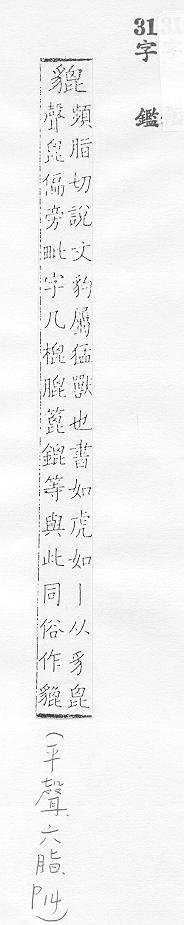 31字 鑑
貔
頻脂切說文豹屬猛獸也書如虎如丨从豸毘
聲毘偏旁毗字凡榌膍篦鎞等與此同俗作貔
(平聲.六脂.P14)